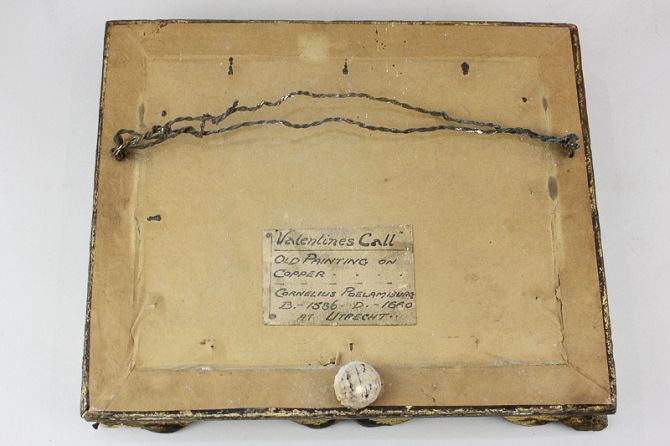 "Valentines Call"
OLD PAINTING ON
COPPER - - - -
CORNELIUS POELAMBURG
B.-1586 D.-1660
AT UTRECHT..